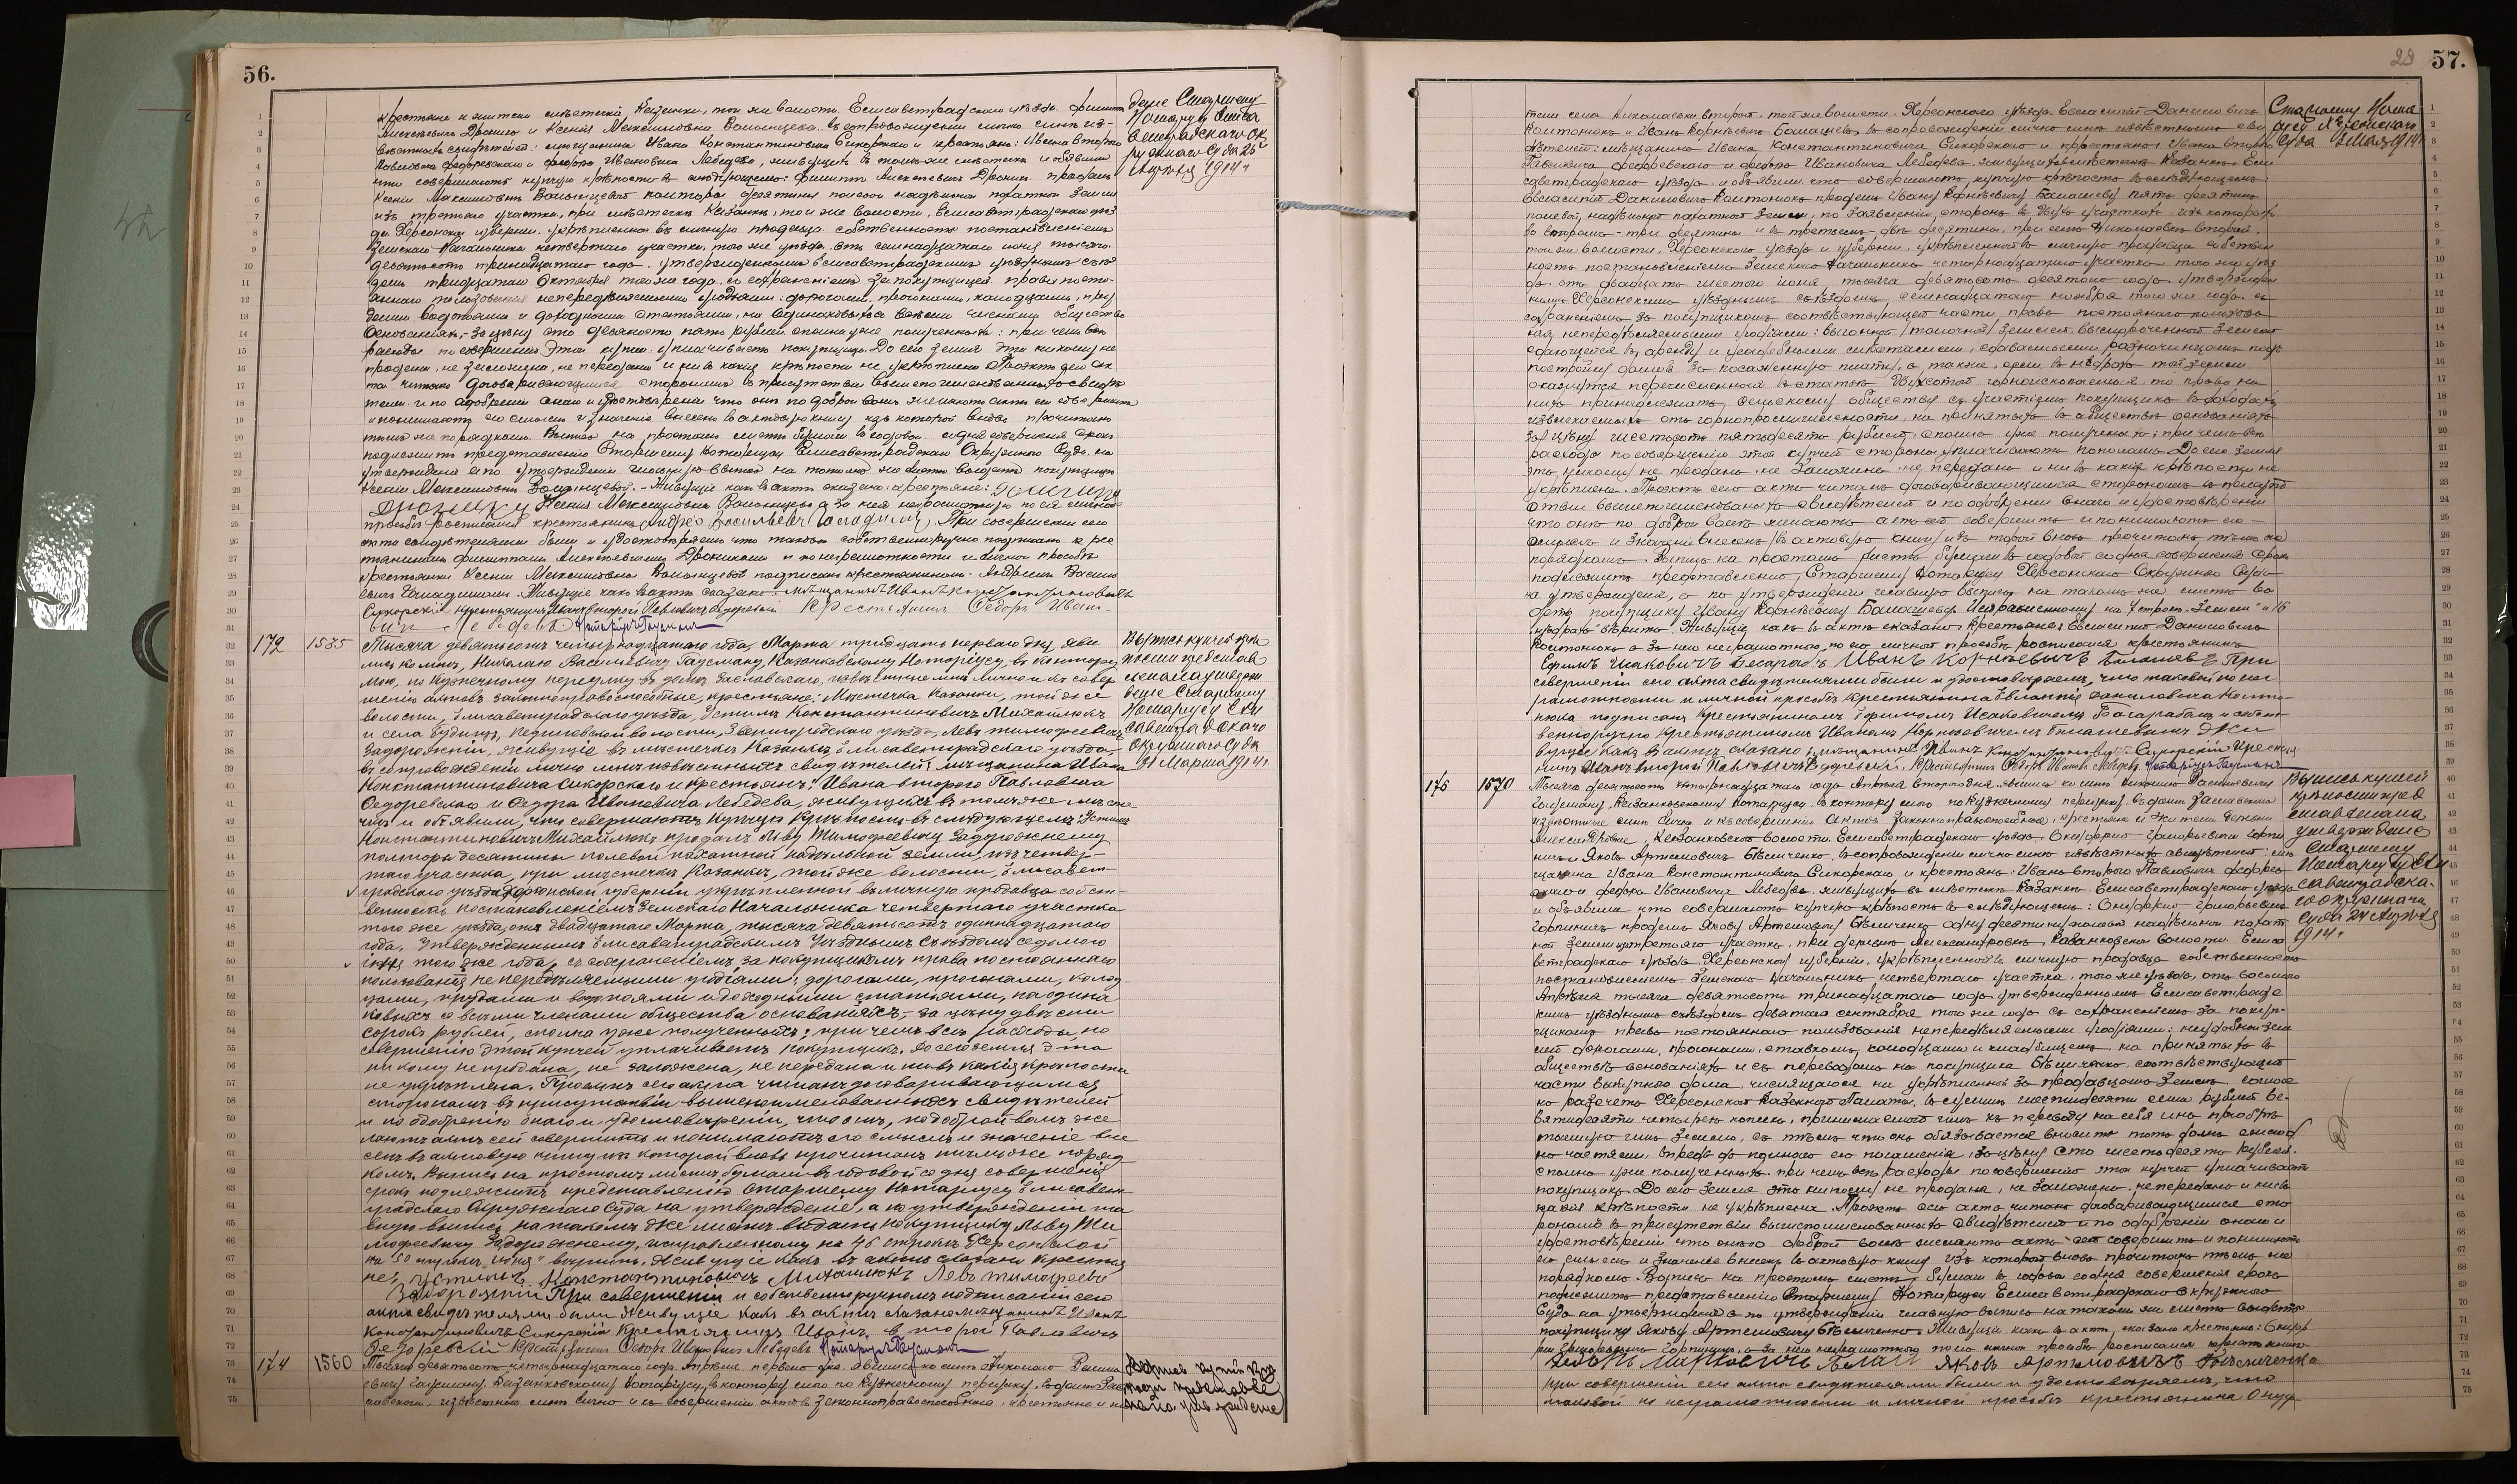 56.
крестьяне и жители мѣстечка Казанки, той же волости, Елисаветградскаго уѣзда, Филиппъ
Алексѣевичъ Дроникъ и Ксенія Максимовна Волынцева, въ сопровожденіи лично мнѣ из-
вѣстныхъ свидѣтелей: мѣщанина Ивана Константиновича Сикорскаго и крестьянъ: Ивана второго
Павловича Федоревскаго и Федора Ивановича Лебедева, живущихъ въ томъ же мѣстечкѣ и объявили
что совершаютъ купчую крѣпость въ слѣдующемъ: Филиппъ Алексѣевичъ Дроникъ продалъ
Ксеніи Максимовнѣ Волынцевой полторы десятины полевой надѣльной пахатной земли
изъ третьяго участка, при мѣстечкѣ Казанкѣ, той же волости, Елисаветградскаго уѣз-
да, Херсонской губерніи, укрѣпленной въ личную продавца собственность постановленіемъ
Земскаго Начальника четвертаго участка, того же уѣзда, отъ семнадцатаго іюня тысяча
девятьсотъ тринадцатаго года, утвержденнымъ Елисаветградскимъ уѣзднымъ съѣз-
домъ тридцатаго Октября того же года, съ сохраненіемъ за покупщицей права посто-
яннаго пользованія непередѣляемыми угодіями: дорогами, прогонами, колодцами, пру-
дами, водопоями и доходными статьями, на одинаковыхъ со всѣми членами общества
основаніяхъ, – за цѣну сто девяносто пять рублей, сполна уже полученныхъ; при чемъ всѣ
расходы по совершенію этой купчей уплачиваетъ покупщица. До сего земля эта никому не
продана, не заложена, не передана и ни въ какія крѣпости не укрѣплена. Проэктъ сего ак-
та читанъ договаривающимся сторонамъ въ присутствіи вышепоименованныхъ свидѣ-
телей и по одобреніи онаго и удостовѣреніи что они по доброй волѣ желаютъ актъ сей совершить
и понимаютъ его смыслъ и значеніе внесенъ въ актовую книгу изъ которой вновь прочитанъ
тѣмъ же порядкомъ. Выпись на простомъ листѣ бумаги въ годовой со дня совершенія срокъ
подлежитъ представленію Старшему Нотаріусу Елисаветградскаго Окружнаго Суда на
утвержденіе а по утвержденіи главную выпись на такомъ же листѣ выдать покупщицѣ
Ксеніи Максимовнѣ Волынцевой. – Живущіе какъ въ актѣ сказано: крестьяне:
Ксенія Максимовна Волынцева а за нея неграмотную по ея личной
просьбѣ росписался крестьянинъ При совершеніи сего
акта свидѣтелями были и удостовѣряемъ что таковой собственноручно подписанъ кре-
стьяниномъ Филиппомъ Алексѣевичемъ Дроникомъ и по неграмотности и личной просьбѣ
крестьянки Ксеніи Максимовны Волынцевой подписанъ крестьяниномъ Андреемъ Василь-
Живущіе какъ въ актѣ сказано: мѣщанинъ Иванъ Константиновичъ
Сикорскій Крестьянинъ Иванъ второй Павловичъ Федоревскій Крестьянинъ Федоръ Ивано-
вич Лебедевъ Нотаріусъ Гаусманъ
деніе Старшему
Нотаріусу Елиса-
ветградскаго Ок-
ружнаго Суда 25
Апрѣля 1914 г.
172 1535 Тысяча девятьсотъ четырнадцатаго года, Марта тридцать перваго дня, яви-
лись ко мнѣ, Николаю Васильевичу Гаусману, Казанковскому Нотаріусу, въ контору
мою, по Кузнечному переулку въ домѣ Заславскаго, извѣстные мнѣ лично и къ совер-
шенію актовъ законоправоспособные, крестьяне: Мѣстечка Казанки, той же
волости, Елисаветградскаго уѣзда, Устинъ Константиновичъ Михайлюкъ
и села Будища, волости, Звенигородскаго уѣзда, Левъ Тимофеевичъ
Задорожній, живущіе въ мѣстечкѣ Казанкѣ, Елисаветградскаго уѣзда,
въ сопровожденіи лично мнѣ извѣстныхъ свидѣтелей: мѣщанина Ивана
Константиновича Сикорскаго и крестьянъ: Ивана второго Павловича
Федоревскаго и Федора Ивановича Лебедева, живущихъ въ томъ же мѣсте-
чкѣ и объявили, что совершаютъ купчую крѣпость въ слѣдующемъ: Устинъ
Константиновичъ Михайлюкъ продалъ Льву Тимофеевичу Задорожнему
полторы десятины полевой пахатной надѣльной земли, изъ четвер-
таго участка, при мѣстечкѣ Казанкѣ, той же волости, Елисавет-
градскаго уѣзда, Херсонской губерніи укрѣпленной въ личную продавца собст-
венность постановленіемъ Земскаго Начальника четвертаго участка
того же уѣзда, отъ двадцатаго Марта, тысяча девятьсотъ одиннадцатаго
года, утвержденнымъ Елисаветградскимъ Уѣзднымъ Съѣздомъ седьмого
іюня того же года, съ сохраненіемъ за покупщикомъ права постояннаго
пользованія непередѣляемыми угодіями: дорогами, прогонами, колод-
цами, прудами и водопоями и доходными статьями, на одина-
ковыхъ со всѣми членами общества основаніяхъ, – за цѣну двѣсти
сорокъ рублей, сполна уже полученныхъ; при чемъ всѣ расходы, по
совершенію этой купчей уплачиваетъ покупщикъ. До сего земля эта
никому не продана, не заложена, не передана и ни въ какія крѣпости
не укрѣплена. Проектъ сего акта читанъ договаривающимся
сторонамъ въ присутствіи вышепоименованныхъ свидѣтелей
и по одобреніи онаго и удостовѣреніи, что они, по доброй волѣ же-
лаютъ актъ сей совершить и понимаютъ его смыслъ и значеніе вне-
сенъ въ актовую книгу изъ которой вновь прочитанъ тѣмъ же поряд-
комъ. Выпись на простомъ листѣ бумаги въ годовой со дня совершенія
срокъ подлежитъ представленію Старшему Нотаріусу Елисавет-
градскаго Окружнаго Суда на утвержденіе, а по утвержденіи глав-
ную выпись на такомъ же листѣ выдать покупщику Льву Ти-
мофеевичу Задорожнему, исправленному на 46 строкѣ „Херсонской
на 50 строкѣ „іюня" вѣрить. Живущіе какъ въ актѣ сказано крестья-
не, Устинъ Константиновичъ Михайлюкъ Левъ Тимофеевъ
Задорожній При совершеніи и собственноручномъ подписаніи сего
акта свидѣтелями были Живущіе какъ въ актѣ сказано: мѣщанинъ Иванъ
Константиновичъ Сикорскій Крестьянинъ Иванъ второй Павловичъ
Федоревскій Крестьянинъ Федоръ Ивановичъ Лебедевъ Нотаріусъ Гаусманъ
Выпись купчей крѣ-
пости представ-
лена на утверж-
деніе Старшему
Нотаріусу Ели-
саветградскаго
Окружнаго Суда
31 Марта 1914 г.
174 1560 Тысяча девятьсотъ четырнадцатаго года, Апрѣля перваго дня, явились ко мнѣ Николаю Василь-
евичу Гаусману, Казанковскому Нотаріусу, въ контору мою по Кузнечному переулку, въ домѣ Зас-
лавскаго, извѣстные мнѣ лично и къ совершенію актовъ законоправоспособные, крестьяне и жи-
Выпись купчей крѣ-
пости представле-
на на утвержденіе
29 57.
тели села Николаевки второй, той же волости, Херсонскаго уѣзда, Евлампій Даниловичъ
Коптюнокъ и Иванъ Корнѣевичъ Балашевъ, въ сопровожденіи лично мнѣ извѣстныхъ сви-
дѣтелей: мѣщанина Ивана Константиновича Сикорскаго и крестьянъ: Ивана второго
Павловича Федоревскаго и Федора Ивановича Лебедева, живущихъ въ мѣстечкѣ Казанкѣ, Ели-
саветградскаго уѣзда, и объявили, что совершаютъ купчую крѣпость въ слѣдующемъ:
Евлампій Даниловичъ Коптюнокъ продалъ Ивану Корнѣевичу Балашеву пять десятинъ
полевой, надѣльной пахатной земли, по заявленію сторонъ въ двухъ участкахъ, изъ которыхъ
во второмъ – три десятины и въ третьемъ – двѣ десятины, при селѣ Николаевкѣ второй,
той же волости, Херсонскаго уѣзда и губерніи, укрѣпленной въ личную продавца собствен-
ность постановленіемъ Земскаго Начальника четырнадцатаго участка того же уѣз-
да, отъ двадцать шестого іюня тысяча девятьсотъ десятаго года, утвержден-
нымъ Херсонскимъ уѣзднымъ съѣздомъ, семнадцатаго ноября того же года, съ
сохраненіемъ за покупщикомъ соотвѣтствующей части права постояннаго пользова-
нія непередѣляемыми угодіями: выгонной, толочной, землей
сдающейся въ аренду и усадебными сдаваемыми разночинцамъ подъ
постройку домовъ за посаженную плату, а также, если въ нѣдрахъ той земли
окажутся перечисленныя въ статьѣ двухсотой горноископаемыя, то право на
нихъ принадлежитъ Сельскому обществу съ участіемъ покупщика въ доходахъ
извлекаемыхъ отъ горнопромышленности, на принятыхъ въ обществѣ основаніяхъ
за цѣну шестьсотъ пятьдесятъ рублей, сполна уже полученныхъ; при чемъ всѣ
расходы по совершенію этой купчей стороны уплачиваютъ пополамъ. До сего земля
эта никому не продана, не заложена, не передана и ни въ какія крѣпости не
укрѣплена. Проэктъ сего акта читанъ договаривающимся сторонамъ въ присут-
ствіи вышепоименованныхъ свидѣтелей и по одобреніи онаго и удостовѣреніи
что они по доброй волѣ желаютъ актъ сей совершить и понимаютъ его
смыслъ и значеніе внесенъ въ актовую книгу изъ которой вновь прочитанъ тѣмъ же
порядкомъ. Выпись на простомъ листѣ бумаги въ годовой со дня совершенія срокъ
подлежитъ представленію Старшему Нотаріусу Херсонскаго Окружнаго Суда
на утвержденіе, а по утвержденіи главную выпись на такомъ же листѣ вы-
дать покупщику Ивану Корнѣевичу Балашеву. Исправленному на 7 строкѣ „земли" и 16
„нѣдрахъ" вѣрить. Живущіе какъ въ актѣ сказано: крестьяне: Евлампій Даниловичъ
Коптюнокъ а за него неграмотнаго, по его личной просьбѣ росписался крестьянинъ
Ефимъ Исаковичъ Багарабъ Иванъ Корнѣевичъ Балашевъ При
совершеніи сего акта свидѣтелями были и удостовѣряемъ, что таковой по не-
грамотности и личной просьбѣ крестьянина Евлампія Даниловича Коптю-
нока подписанъ крестьяниномъ Ефимомъ Исаковичемъ Багарабомъ и собст-
венноручно крестьяниномъ Иваномъ Корнѣевичемъ Балашевымъ Жи-
вущіе какъ въ актѣ сказано: мѣщанинъ Иванъ Константиновичъ Сикорскій Крестья-
нинъ Иванъ второй Павловичъ Федоревскій. Крестьянинъ Федоръ Ивановъ Лебедевъ Нотаріусъ Гаусманъ
Старшему Нота-
ріусу Херсонскаго
Суда 1914 г.
175 1570 Тысяча девятьсотъ четырнадцатаго года Апрѣля второго дня, явились ко мнѣ Николаю Васильевичу
Гаусману, Казанковскому Нотаріусу, въ контору мою по Кузнечному переулку, въ домѣ Заславскаго
извѣстные мнѣ лично и къ совершенію актовъ законоправоспособные, крестьяне и жители деревни
Александровки, Казанковской волости, Елисаветградскаго уѣзда, Онуфрій Григорьевичъ Горпи-
ничъ и Яковъ Артемовичъ Бѣличенко, въ сопровожденіи лично мнѣ извѣстныхъ свидѣтелей: мѣ-
щанина Ивана Константиновича Сикорскаго и крестьянъ: Ивана второго Павловича Федорев-
скаго и Федора Ивановича Лебедева, живущихъ въ мѣстечкѣ Казанкѣ, Елисаветградскаго уѣзда
и объявили что совершаютъ купчую крѣпость въ слѣдующемъ: Онуфрій Григорьевичъ
Горпиничъ продалъ Якову Артемовичу Бѣличенко одну десятину полевой надѣльной пахат-
ной земли изъ третьяго участка, при деревнѣ Александровкѣ, Казанковской волости, Елиса-
ветградскаго уѣзда, Херсонской губерніи, укрѣпленной въ личную продавца собственность
постановленіемъ Земскаго Начальника четвертаго участка, того же уѣзда, отъ восьмого
Апрѣля тысяча девятьсотъ тринадцатаго года, утвержденнымъ Елисаветград-
скимъ уѣзднымъ съѣздомъ девятаго сентября того же года съ сохраненіемъ за покуп-
щикомъ права постояннаго пользованія непередѣляемыми угодіями: неудобной зем-
лей, дорогами, прогонами, ставкомъ, колодцами и кладбищемъ, на принятыхъ въ
обществѣ основаніяхъ и съ переводомъ на покупщика Бѣличенко соотвѣтствующей
части выкупного долга, числящагося на укрѣпленной за продавцомъ землѣ, соглас-
но разсчета Херсонской Казенной Палаты, въ суммѣ шестидесяти семи рублей де-
вяносто четырехъ копѣекъ, принимаемой имъ къ переводу на себя и на пріобрѣ-
таемую имъ землю, съ тѣмъ что онъ обязывается вносить тотъ долгъ ежегод-
но частями, впредь до полнаго его погашенія, за цѣну сто шестьдесятъ рублей,
сполна уже полученныхъ, при чемъ всѣ расходы по совершенію этой купчей уплачиваетъ
покупщикъ. До сего земля эта никому не продана, не заложена, не передана и ни въ
какія крѣпости не укрѣплена. Проэктъ сего акта читанъ договаривающимся сто-
ронамъ въ присутствіи вышепоименованныхъ свидѣтелей и по одобреніи онаго и
удостовѣреніи что они по доброй волѣ желаютъ актъ сей совершить и понимаютъ
его смыслъ и значеніе внесенъ въ актовую книгу изъ которой вновь прочитанъ тѣмъ же
порядкомъ. Выпись на простомъ листѣ бумаги въ годовой со дня совершенія срокъ
подлежитъ представленію Старшему Нотаріусу Елисаветградскаго Окружнаго
Суда на утвержденіе а по утвержденіи главную выпись на такомъ же листѣ выдать
покупщику Якову Артемовичу Бѣличенко. Живущіе какъ въ актѣ сказано крестьяне: Онуф-
рій Григорьевичъ Горпиничъ, а за него неграмотнаго по его личной просьбѣ росписался крестьянинъ
Яковъ Артемовичъ Бѣличенко
При совершеніи сего акта свидѣтелями были и удостовѣряемъ, что
таковой по неграмотности и личной просьбѣ крестьянина Онуф-
Выпись купчей
крѣпости пред-
ставлена на
утвержденіе
Старшему
Нотаріусу Ели-
саветградска-
го Окружнаго
Суда 24 Апрѣля
1914 г.